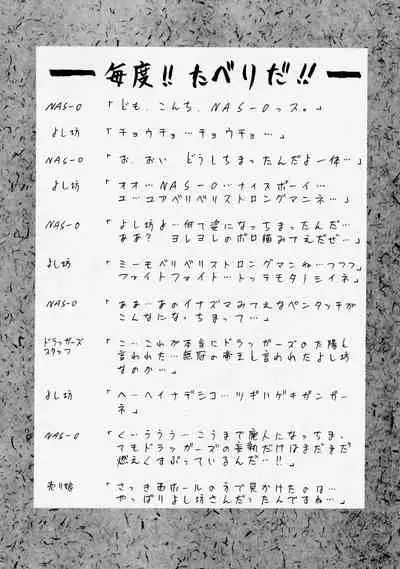 毎度!! たべりだ!!
NAS-O 「ども、こんち、NAS-Oっス。」
よし坊 「チョウチョ…チョウチョ…」
NAS-O 「お、おい どうしちまったんだよ一体…」
よし坊 「オオ…NAS-O…ナイスボーイ…
ユ…ユアベリベリストロングマンネ…」
NAS-O 「よし坊よ…何て姿になっちまったんだ…
ああ? ヨレヨレのボロ猫みてえだぜ…」
よし坊 「ミーモベリベリストロングマンね…フフフ
ファイトファイト…トッテモターミイネ」
NAS-O 「ああ…あのイナズマみてえなペンタッチが
こんなになっちまって…」
ドラッガーズ
スタッフ
「こ…これが本当にドラッガーズの太陽と
言われた…無冠の帝王と言われたよし坊
なのか…」
よし坊 「ヘーヘイナデシコ…ツギハゲキガンガー
ネ」
NAS-O 「く…ううう…こうまで廃人になっちま、
てもドラッガーズの妄執だけはまだまだ
燃えくすぶっているんだ…!!」
売り娘 「さっき西ホールの方で見かけたのは…
やっぱりよし坊さんだったんですね…」